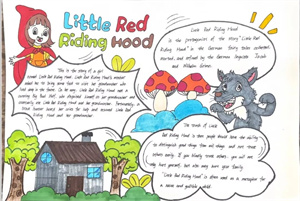 Little Red
Riding Hood
This is the story of a girl
named Little Red Riding Hood. Little Red Riding Hood's mother
asked her to bring some food to visit her grandmother who
lived deep in the forest. On the way, Little Red Riding Hood met a
cunning Big Bad Wolf, who disguised himself as her grandmother and
eventually ate Little Red Riding Hood and her grandmother. Fortunately, a
hunter the wolf and rescued Little Red
Riding Hood and her grandmother.
Little Red Riding Hood
is the protagonist of the story "Little Red
Riding Hood" in the German fairy tales collected,
sorted, and edited by the German linguists Jacob
and Wilhelm Grimm.
The moral of Little
Red Riding Hood is that people should have the ability
to distinguish good things from bad things, and not trust
others easily. If you blindly trust others, you will not
only hurt yourself, but also may hurt your family.
"Little Red Riding Hood" is often used as a metaphor for
a naive and gullible child.